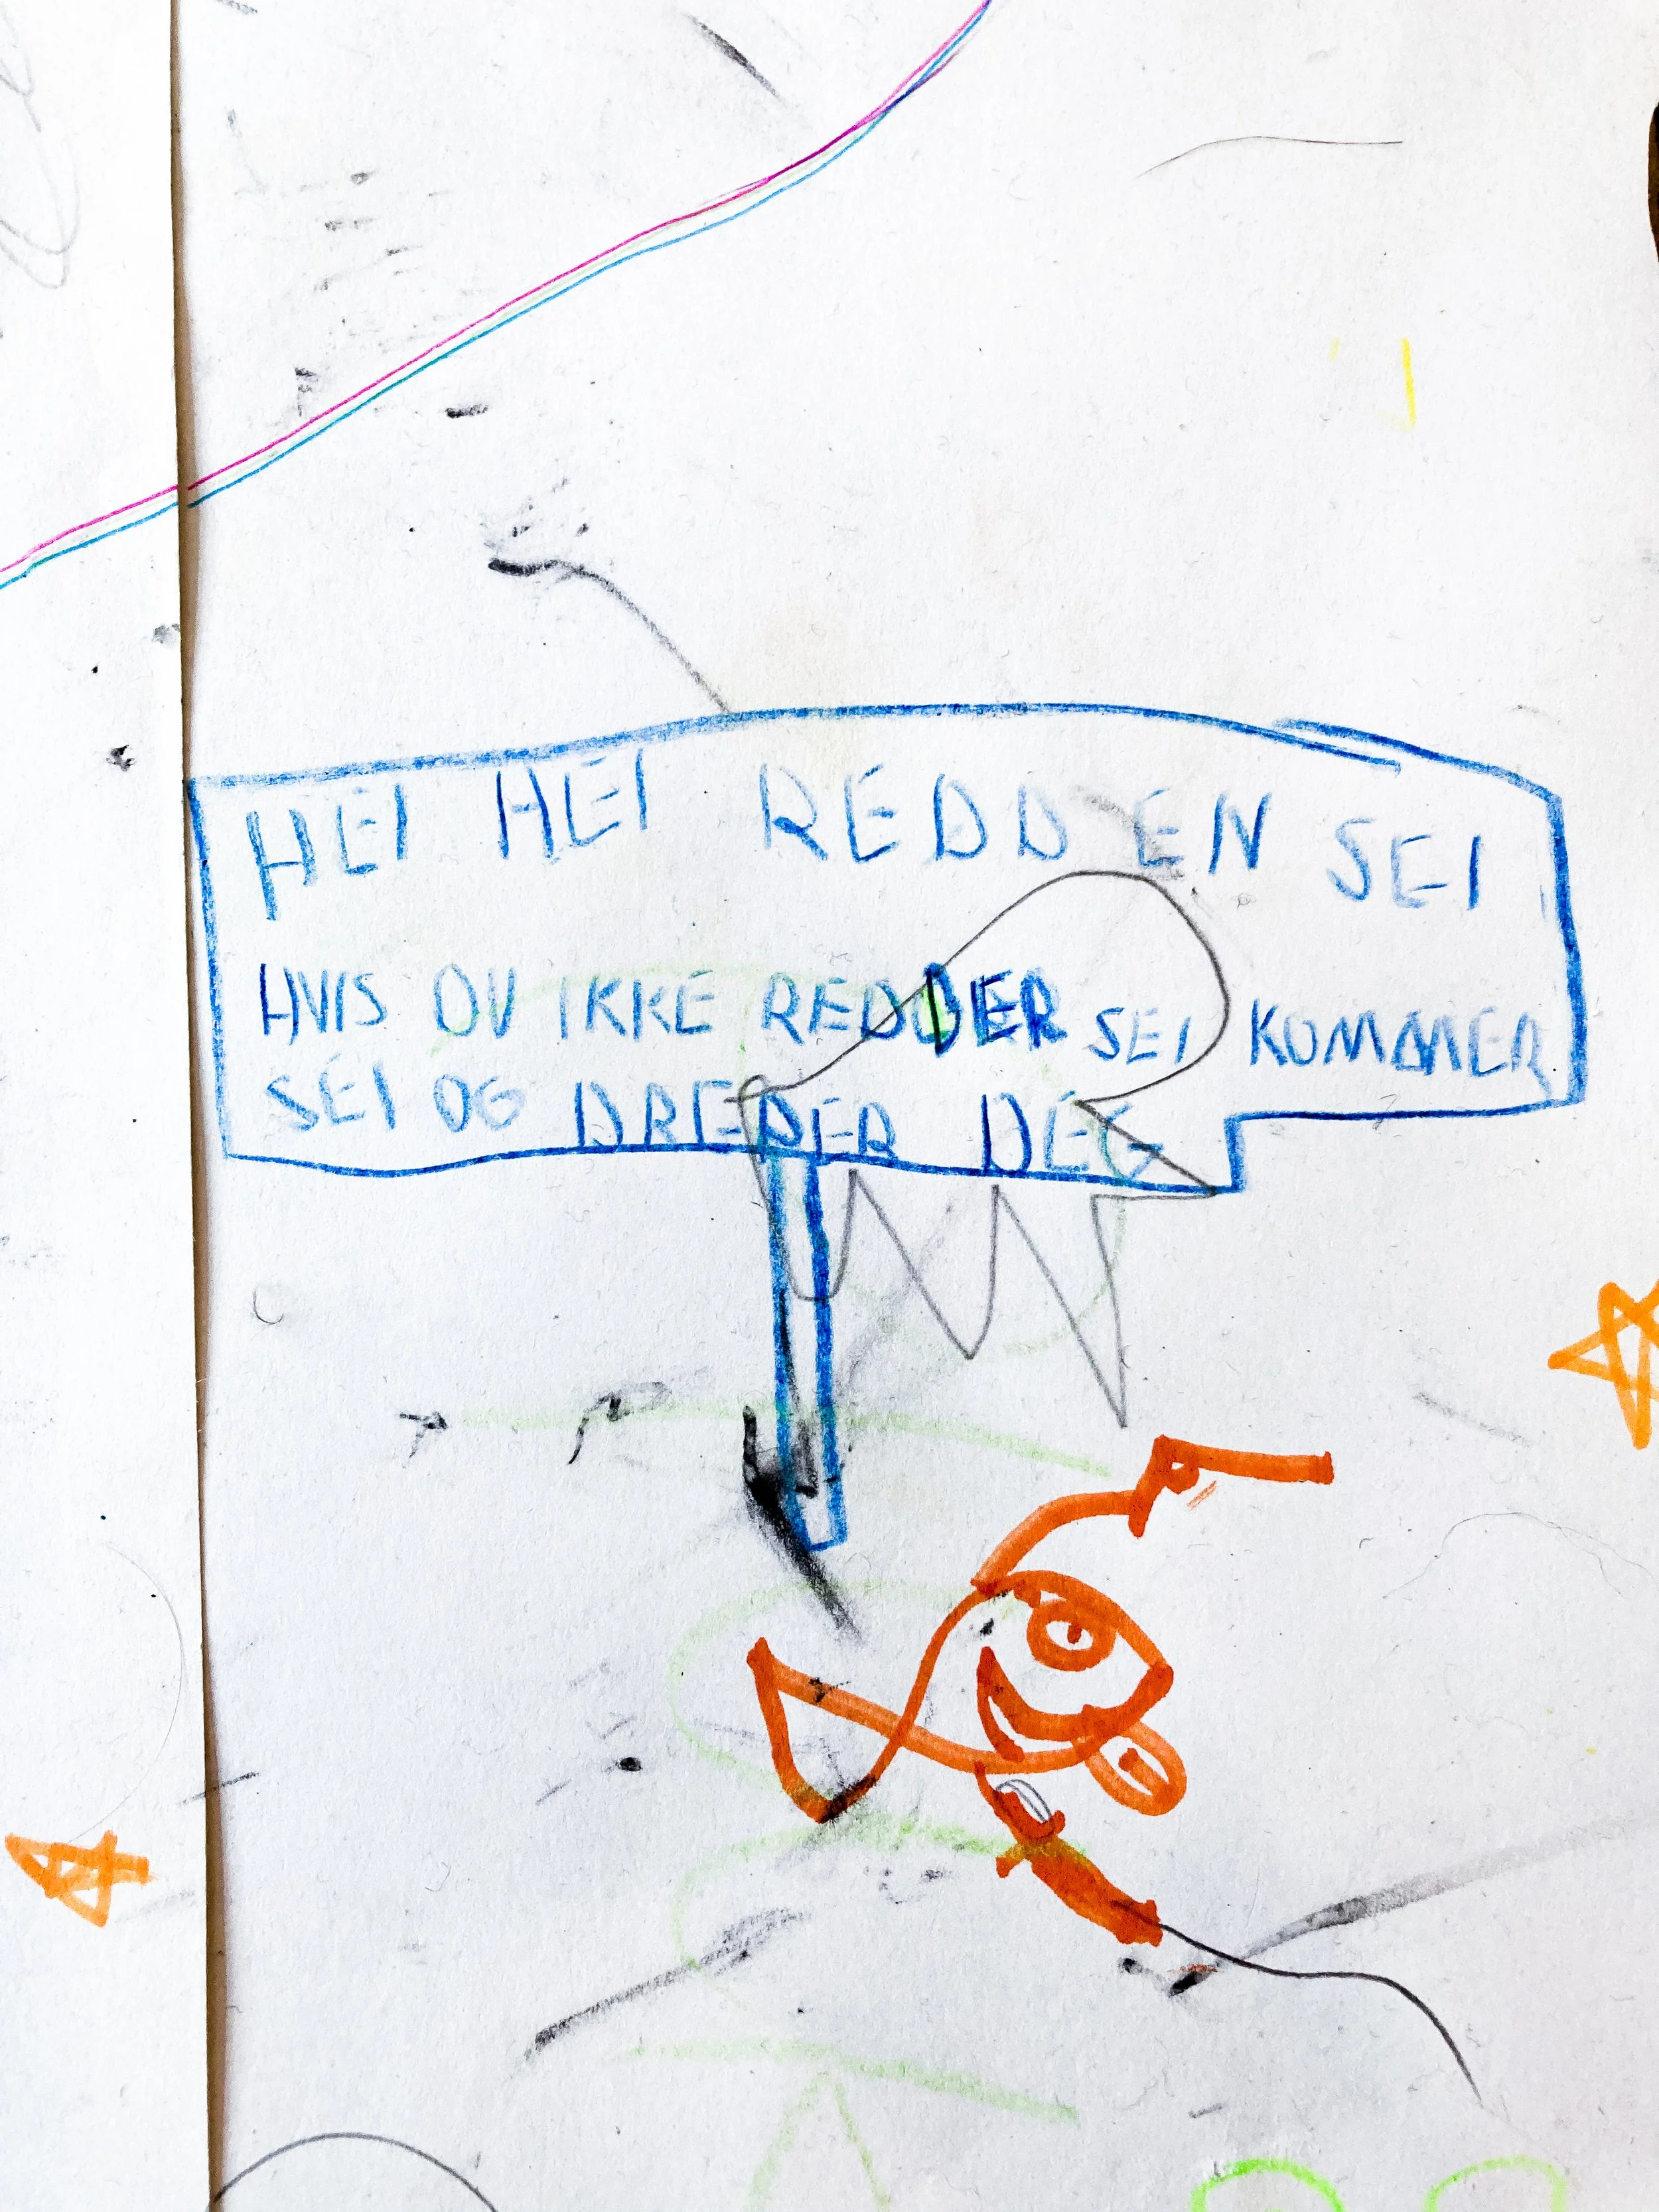 HEI HEI REDD EN SEI
HVIS DU IKKE REDDER SEI KOMMER
SEI OG DREPER DEG